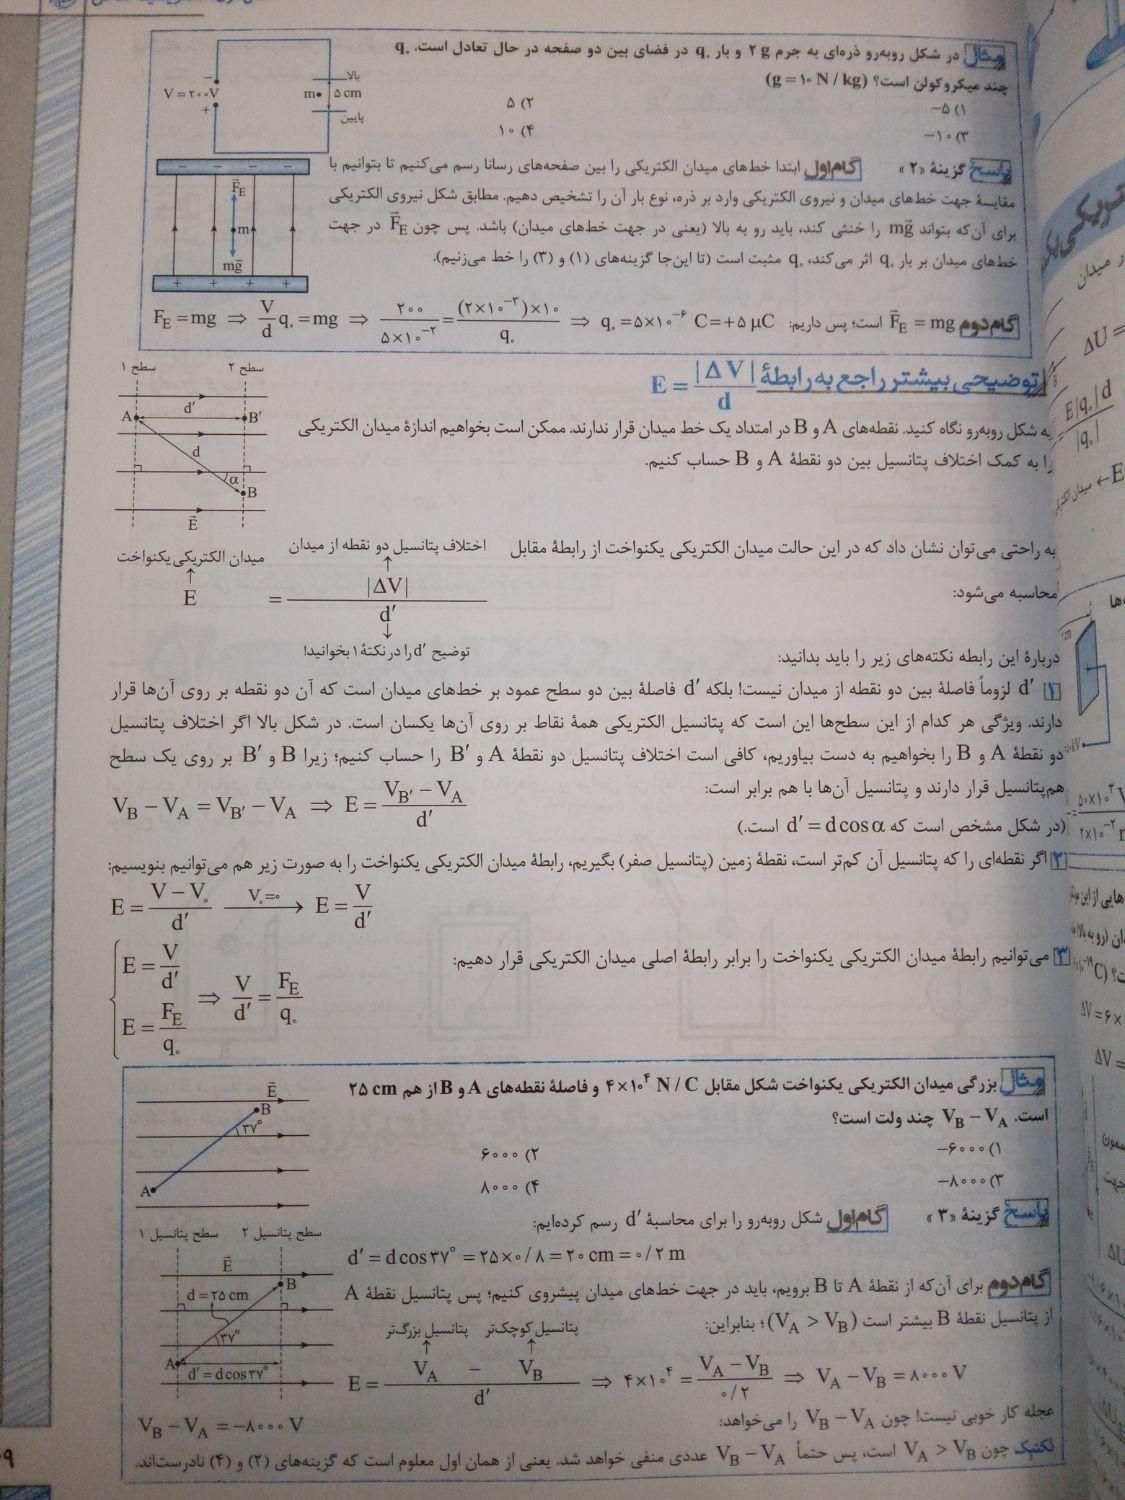 مثال در شکل روبه‌رو ذره‌ای به جرم ۲ g و بار q₀ در فضای بین دو صفحه در حال تعادل است. q₀
چند میکروکولن است؟ (g = ۱۰ N / kg)
۱) −۵
۲) ۵
۳) −۱۰
۴) ۱۰
بالا
V = ۲۰۰V
m
۵ cm
پایین
پاسخ گزینهٔ «۲» گام اول ابتدا خط‌های میدان الکتریکی را بین صفحه‌های رسانا رسم می‌کنیم تا بتوانیم با
مقایسهٔ جهت خط‌های میدان و نیروی الکتریکی وارد بر ذره، نوع بار آن را تشخیص دهیم. مطابق شکل نیروی الکتریکی
برای آن‌که بتواند mg⃗ را خنثی کند، باید رو به بالا (یعنی در جهت خط‌های میدان) باشد. پس چون F⃗E در جهت
خط‌های میدان بر بار q₀ اثر می‌کند، q₀ مثبت است (تا این‌جا گزینه‌های (۱) و (۳) را خط می‌زنیم).
− − − −
F⃗E
m
mg⃗
+ + + +
گام دوم F⃗E = mg است؛ پس داریم: FE = mg ⇒ V/d q₀ = mg ⇒ ۲۰۰/(۵×۱۰⁻²) = (۲×۱۰⁻³)×۱۰/q₀ ⇒ q₀ = ۵×۱۰⁻⁶ C = +۵ μC
توضیحی بیشتر راجع به رابطهٔ E = |ΔV|/d
سطح ۱
سطح ۲
A
d′
B′
d
α
B
E⃗
به شکل روبه‌رو نگاه کنید. نقطه‌های A و B در امتداد یک خط میدان قرار ندارند. ممکن است بخواهیم اندازهٔ میدان الکتریکی
را به کمک اختلاف پتانسیل بین دو نقطهٔ A و B حساب کنیم.
به راحتی می‌توان نشان داد که در این حالت میدان الکتریکی یکنواخت از رابطهٔ مقابل
محاسبه می‌شود:
اختلاف پتانسیل دو نقطه از میدان
میدان الکتریکی یکنواخت
E = |ΔV|/d′
توضیح d′ را در نکتهٔ ۱ بخوانید!
دربارهٔ این رابطه نکته‌های زیر را باید بدانید:
۱ d′ لزوماً فاصلهٔ بین دو نقطه از میدان نیست! بلکه d′ فاصلهٔ بین دو سطح عمود بر خط‌های میدان است که آن دو نقطه بر روی آن‌ها قرار
دارند. ویژگی هر کدام از این سطح‌ها این است که پتانسیل الکتریکی همهٔ نقاط بر روی آن‌ها یکسان است. در شکل بالا اگر اختلاف پتانسیل
دو نقطهٔ A و B را بخواهیم به دست بیاوریم، کافی است اختلاف پتانسیل دو نقطهٔ A و B′ را حساب کنیم؛ زیرا B و B′ بر روی یک سطح
هم‌پتانسیل قرار دارند و پتانسیل آن‌ها با هم برابر است: VB − VA = VB′ − VA ⇒ E = (VB′ − VA)/d′
(در شکل مشخص است که d′ = d cos α است.)
۲ اگر نقطه‌ای را که پتانسیل آن کم‌تر است، نقطهٔ زمین (پتانسیل صفر) بگیریم، رابطهٔ میدان الکتریکی یکنواخت را به صورت زیر هم می‌توانیم بنویسیم:
E = (V − V₀)/d′ V₀=۰ → E = V/d′
۳ می‌توانیم رابطهٔ میدان الکتریکی یکنواخت را برابر رابطهٔ اصلی میدان الکتریکی قرار دهیم:
{ E = V/d′
E = FE/q₀ ⇒ V/d′ = FE/q₀
مثال بزرگی میدان الکتریکی یکنواخت شکل مقابل ۴×۱۰⁴ N / C و فاصلهٔ نقطه‌های A و B از هم ۲۵ cm
است. VB − VA چند ولت است؟
۱) −۶۰۰۰
۲) ۶۰۰۰
۳) −۸۰۰۰
۴) ۸۰۰۰
E⃗
B
۳۷°
A
پاسخ گزینهٔ «۳» گام اول شکل روبه‌رو را برای محاسبهٔ d′ رسم کرده‌ایم:
d′ = d cos ۳۷° = ۲۵×۰/۸ = ۲۰ cm = ۰/۲ m
سطح پتانسیل ۱
سطح پتانسیل ۲
E⃗
B
d = ۲۵ cm
۳۷°
A
d′ = d cos ۳۷°
گام دوم برای آن‌که از نقطهٔ A تا B برویم، باید در جهت خط‌های میدان پیشروی کنیم؛ پس پتانسیل نقطهٔ A
از پتانسیل نقطهٔ B بیشتر است (VA > VB)؛ بنابراین:
پتانسیل بزرگ‌تر پتانسیل کوچک‌تر
E = (VA − VB)/d′ ⇒ ۴×۱۰⁴ = (VA − VB)/۰/۲ ⇒ VA − VB = ۸۰۰۰ V
عجله کار خوبی نیست! چون VB − VA را می‌خواهد: VB − VA = −۸۰۰۰ V
تکنیک چون VA > VB است، پس حتماً VB − VA عددی منفی خواهد شد. یعنی از همان اول معلوم است که گزینه‌های (۲) و (۴) نادرست‌اند.